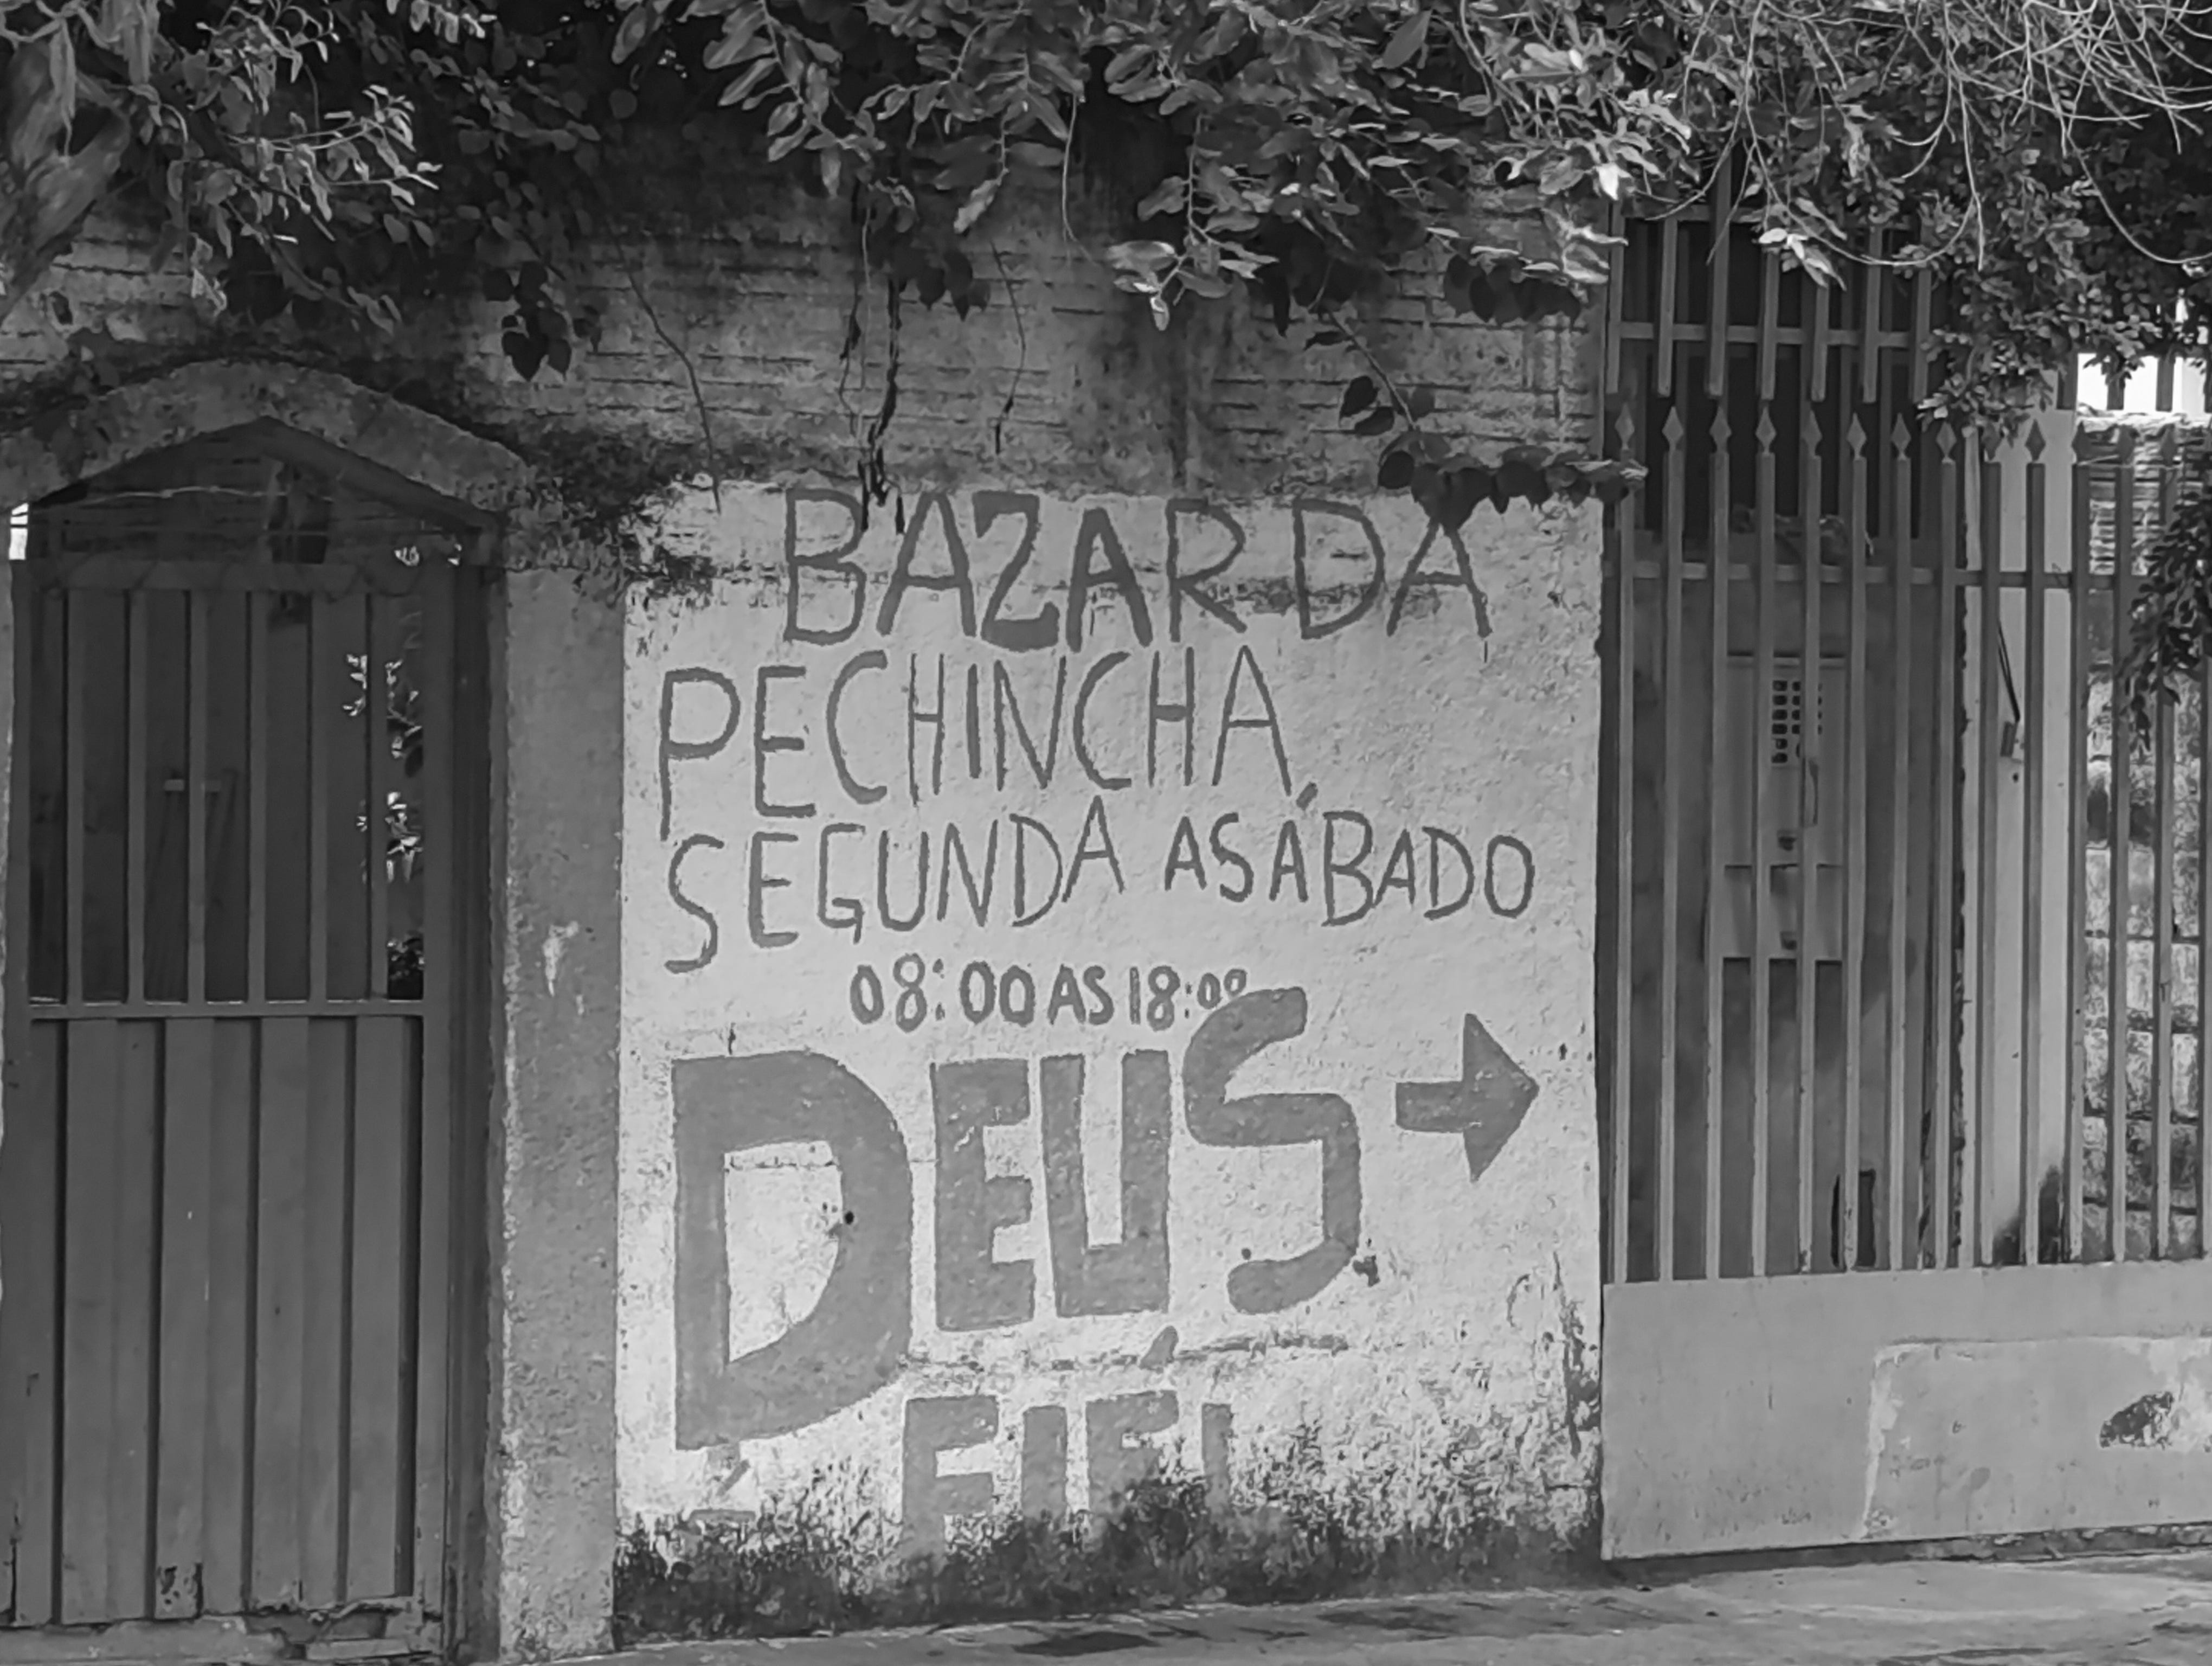 BAZAR DA
PECHINCHA
SEGUNDA A SÁBADO
08:00 AS 18:00
DEUS
É FIEL